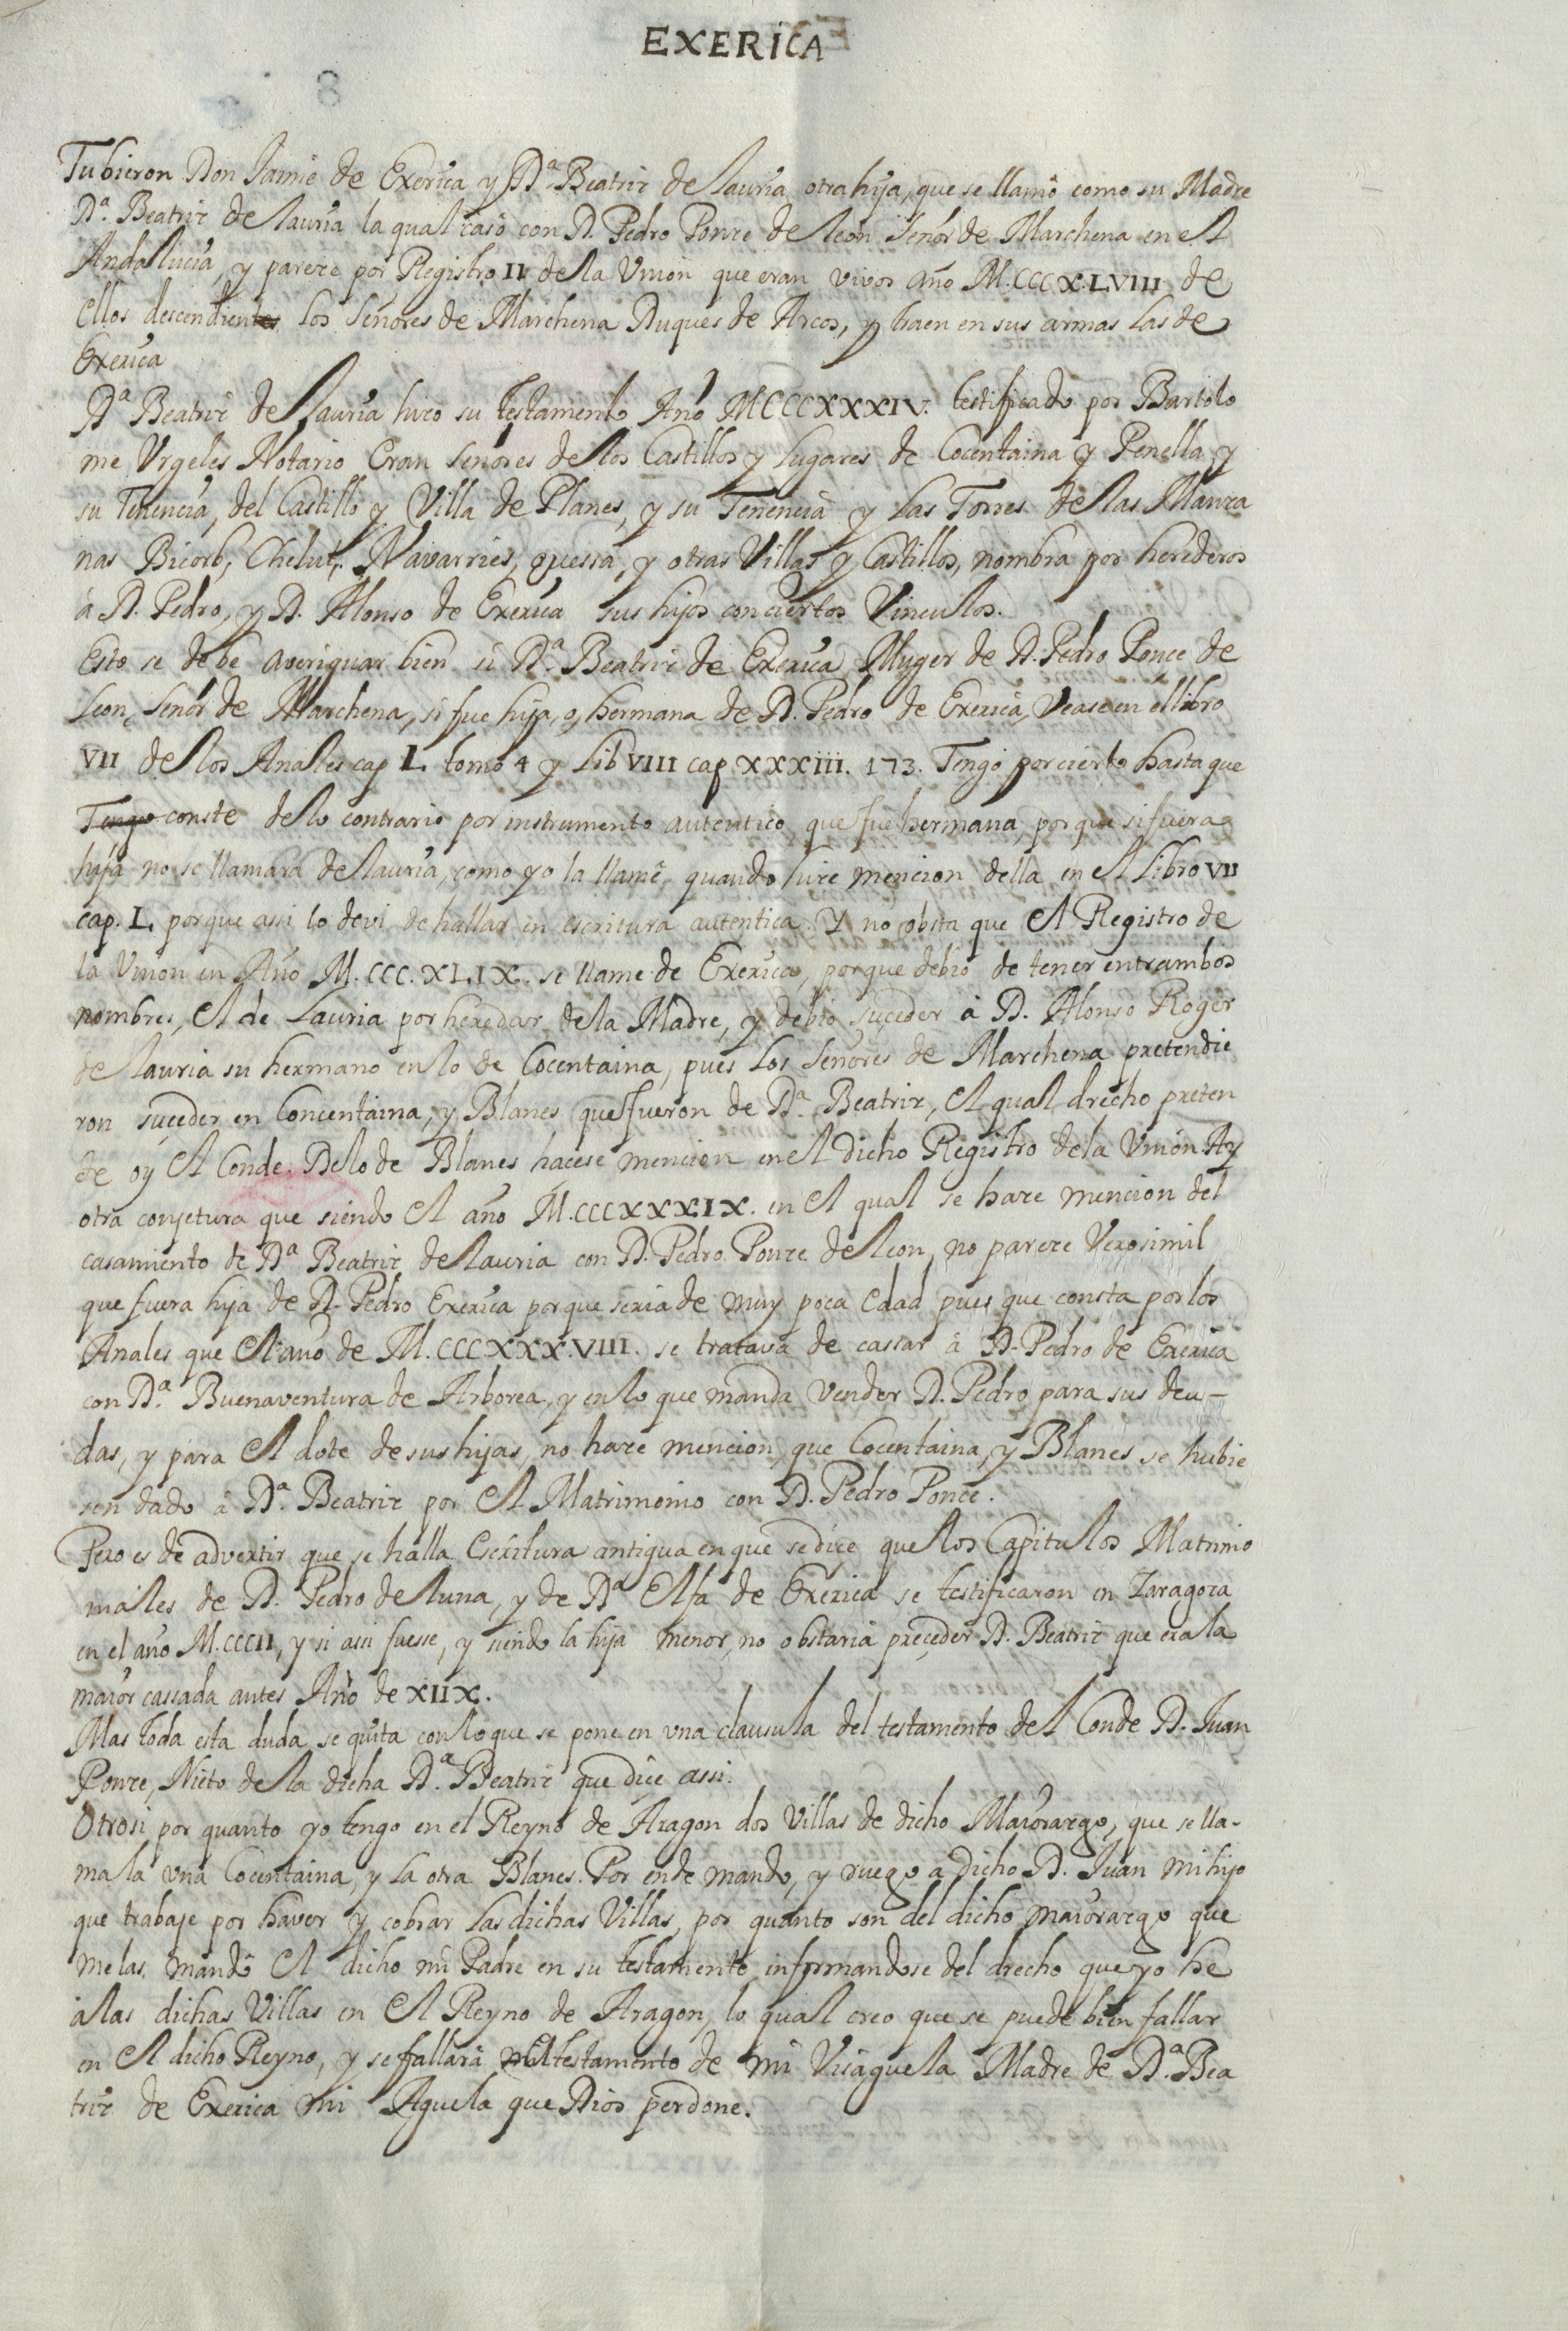 EXERICA
Tubieron Don Jaime de Exerica y D.ª Beatriz de Lauria otra hija, que se llamó como su Madre
D.ª Beatriz de Lauria la qual casó con D. Pedro Ponze de Leon Señor de Marchena en el
Andalucia, y pareze por Registro II de la Union que eran vivos año M.CCCXLVIII. de
ellos descendientes los Señores de Marchena Duques de Arcos, y traen en sus armas las de
Exerica
D.ª Beatriz de Lauria hizo su testamento Año MCCCXXXIV. testificado por Bartolo
me Vrgeles Notario Eran Señores de los Castillos y Lugares de Cocentaina y Penella y
su Tenencia, del Castillo y Villa de Planes, y su Tenencia y Las Torres de las Manza
nas Bicorb, Chelut, Navarries, quessa, y otras Villas y Castillos, nombra por herederos
à D. Pedro, y D. Alonso de Exerica sus hijos con ciertos Vinculos.
Esto se debe averiguar bien si D.ª Beatriz de Exerica Muger de D. Pedro Ponce de
Leon, Señor de Marchena, si fue hija, o hermana de D. Pedro de Exerica, Vease en el libro
VII de los Anales cap L. tomo 4 y Lib VIII cap XXXIII. 173. Tengo por cierto hasta que
Tengo conste de lo contrario por instrumento autentico, que fue hermana, porque si fuera
hija no se llamara de Lauria, como yo la llamé, quando hize mencion della en el Libro VII
cap. L. porque assi lo devi de hallar en escritura autentica. Y no obsta que el Registro de
la Union en Año M.CCC.XLIX. se llame de Exerica, porque debio de tener entrambos
nombres, el de Lauria por heredar de la Madre, y debio suceder à D. Alonso Roger
de Lauria su hermano en lo de Cocentaina, pues los Señores de Marchena pretendie
ron suçeder en Concentaina, y Blanes que fueron de D.ª Beatriz, el qual drecho preten
de oy el Conde. De lo de Blanes hacese mencion en el dicho Registro de la Union Ay
otra conjetura que siendo el año M.CCCXXXIX. en el qual se haze mencion del
casamiento de D.ª Beatriz de Lauria con D. Pedro Ponze de Leon, no pareze Verosimil
que fuera hija de D. Pedro Exerica porque seria de muy poca edad pues que consta por los
Anales que el año de M.CCCXXX.VIII. se tratava de cassar à D. Pedro de Exerica
con D.ª Buenaventura de Arborea, y en lo que manda vender D. Pedro para sus deu-
das, y para el dote de sus hijas, no haze mencion, que Cocentaina, y Blanes se hubie
sen dado à D.ª Beatriz por el Matrimonio con D. Pedro Ponce.
Pero es de advertir que se halla Escritura antigua en que se diçe que los Capitulos Matrimo
niales de D. Pedro de Luna, y de D.ª Elfa de Exerica se testificaron en Zaragoza
en el año M.CCCII, y si assi fuesse, y siendo la hija menor, no obstaria preçeder D. Beatriz que era la
maior cassada antes Año de XIIX.
Mas toda esta duda se quita con lo que se pone en vna clausula del testamento del Conde D. Juan
Ponze, Nieto de la dicha D.ª Beatriz que diçe assi.
Otrosi por quanto yo tengo en el Reyno de Aragon dos Villas de dicho Maiorazgo, que se lla-
ma la vna Cocentaina, y la otra Blanes. Por ende mando, y ruego a dicho D. Juan mi hijo
que trabaje por haver y cobrar las dichas Villas, por quanto son del dicho maiorazgo que
me las mandó el dicho mi Padre en su testamento informandose del drecho que yo he
à las dichas Villas en el Reyno de Aragon, lo qual creo que se puede bien fallar
en el dicho Reyno, y se fallará el testamento de mi Visaguela Madre de D.ª Bea
triz de Exerica mi Aguela que Dios perdone.